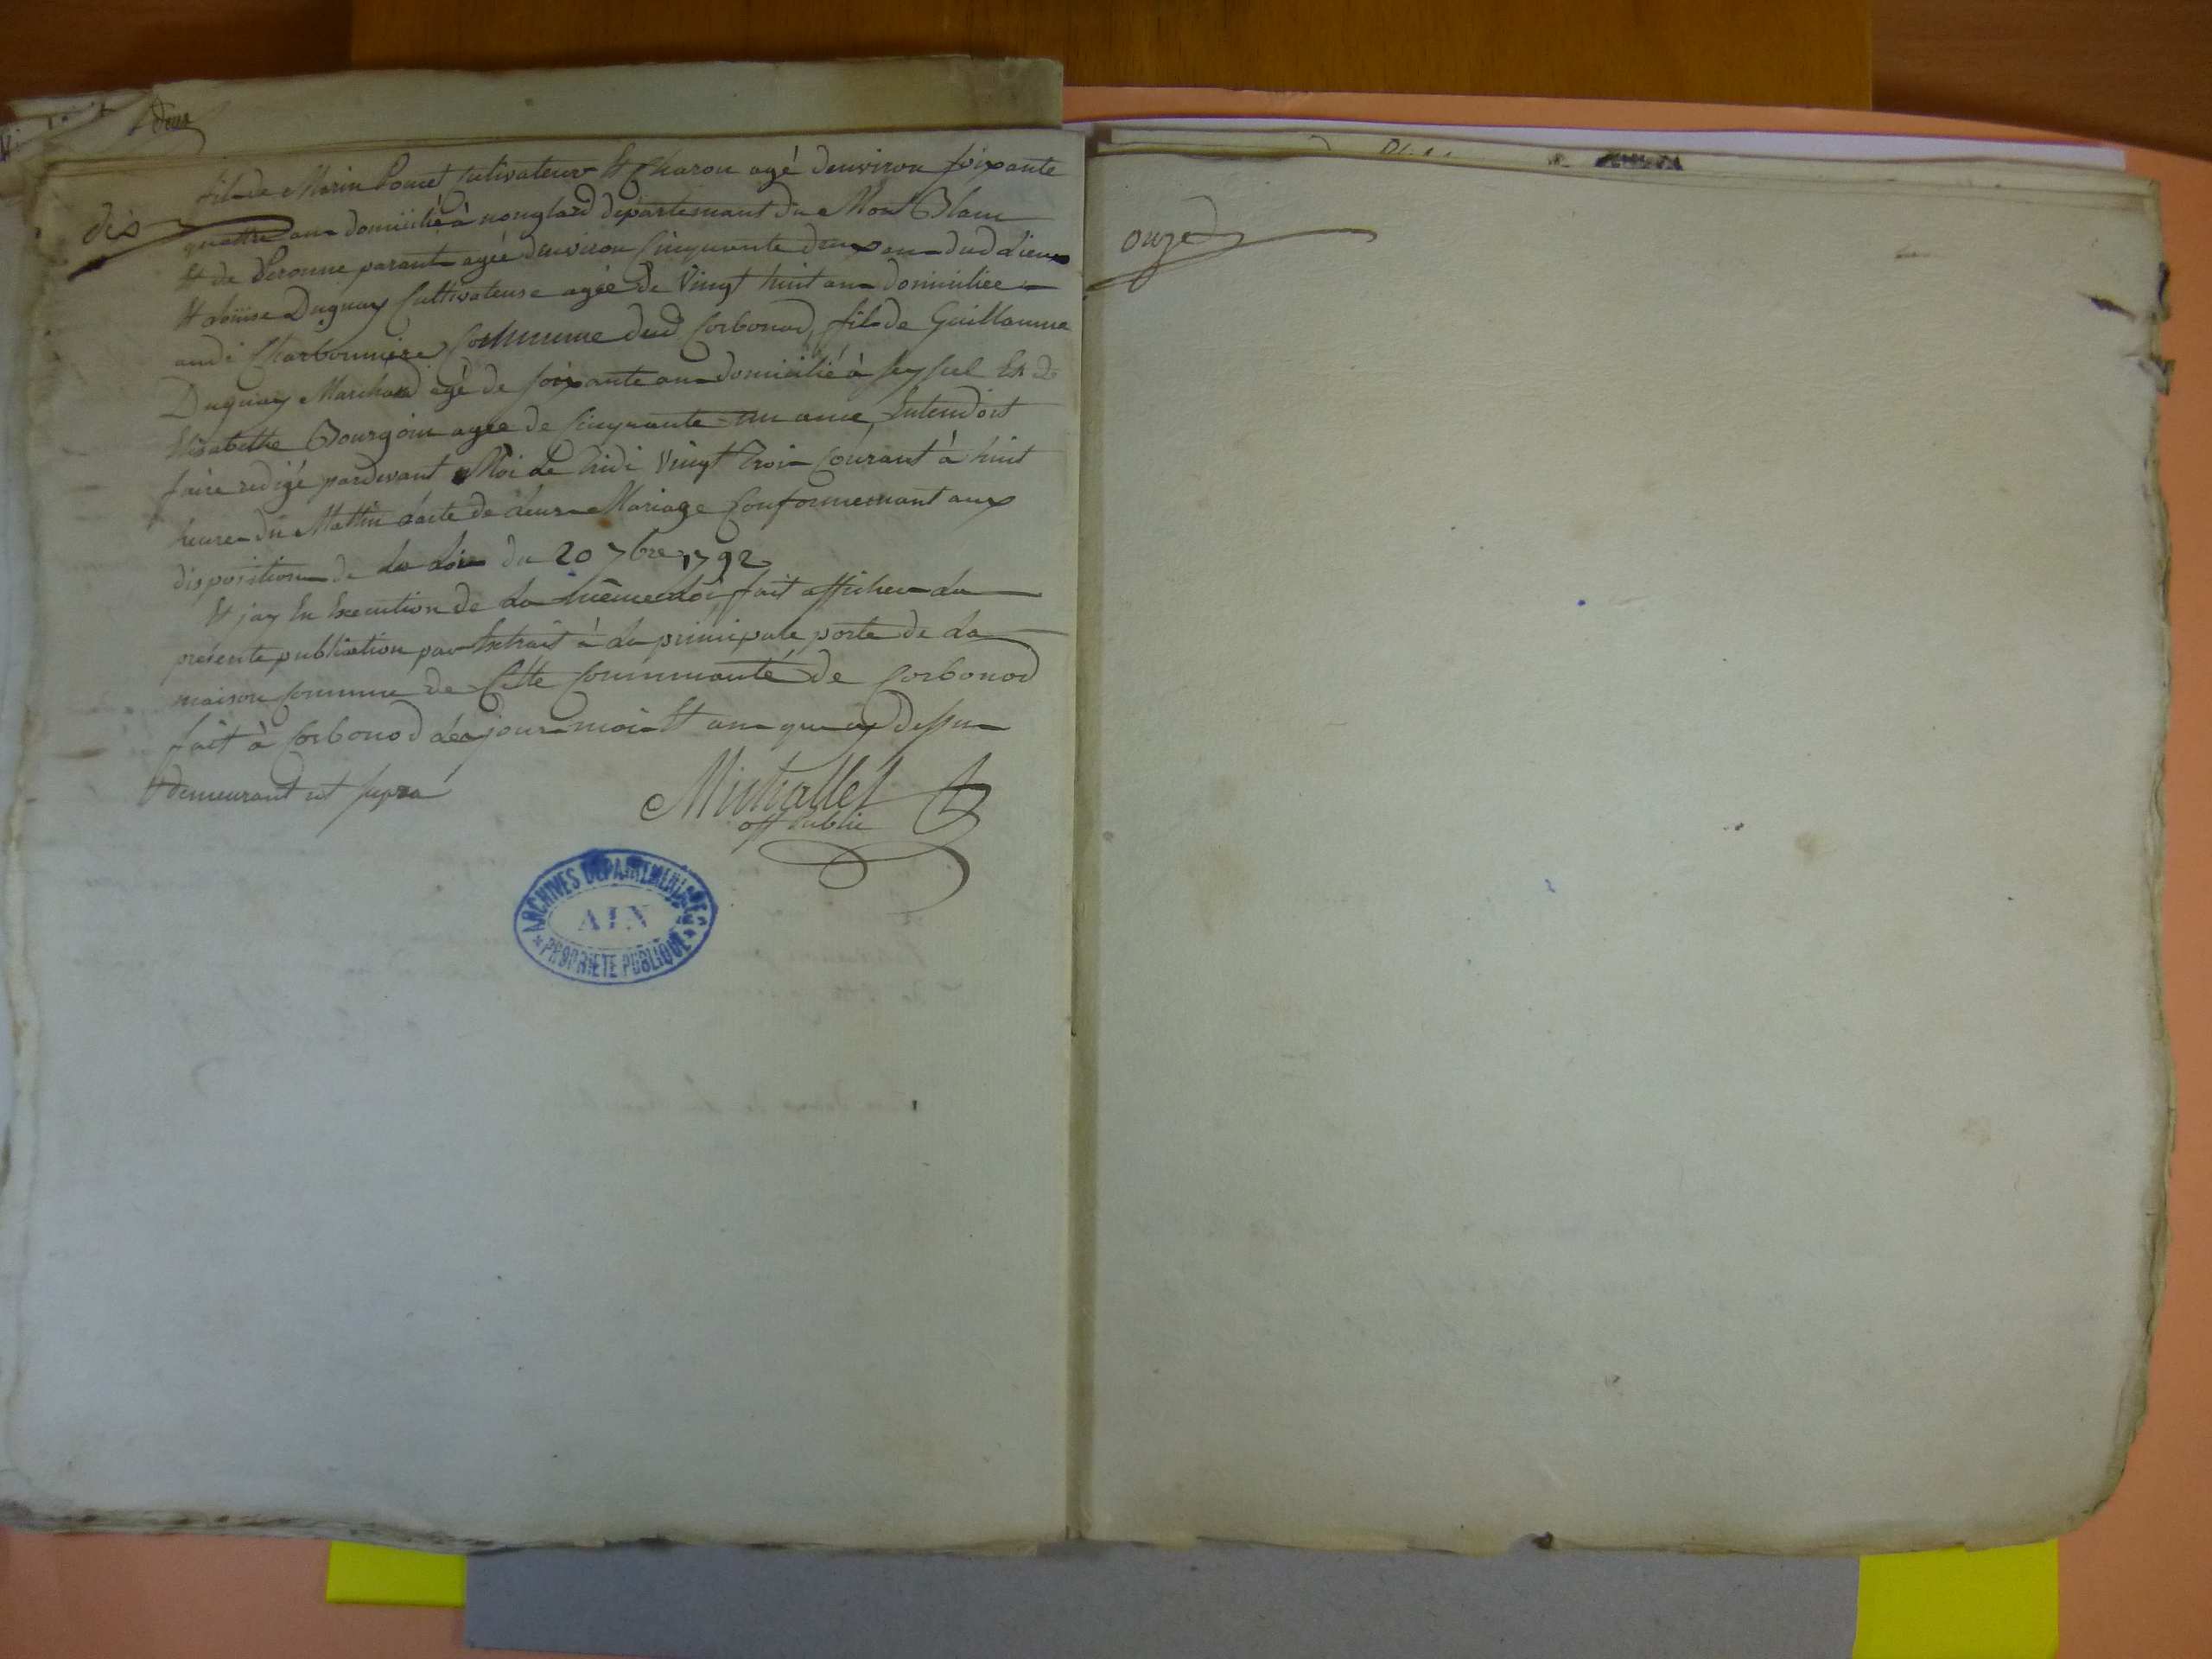 dix
fils de Marin Poncet Cultivateur Et Charon agé denviron soixante
quattre ans domicilié à nonglard département du Mont Blanc
Et de Peronne parant agée denviron Cinquante deux ans dud Lieux
Et Loüise Duguay Cultivateuse agée de Vingt huit ans domiciliée
audi Charbonniere Commune dud Corbonod, fils de Guillaume
Duguay Marchand agé de soixante ans domicilié à Seyssel Et de
Elisabethe Bourgoin agée de Cinquante un anne, Entendoit
faire redigé pardevant Moi Le tridi Vingt Trois Courant à huit
heures du Mattin Lacte de Leurs Mariage Conformemant aux
dispositions de La Loix du 20 7bre 1792
Et jay En Execution de La même Loi, fait afficher La
presente publication par Extrait à La principale porte de La
maison Commune de Cette Communauté de Corbonod
fait à Corbonod Les jours mois Et ans que cy dessus
Et demeurant ut supra
Michallet
off Public
ARCHIVES DEPARTEMENTALES
AIN
PROPRIETE PUBLIQUE
onze